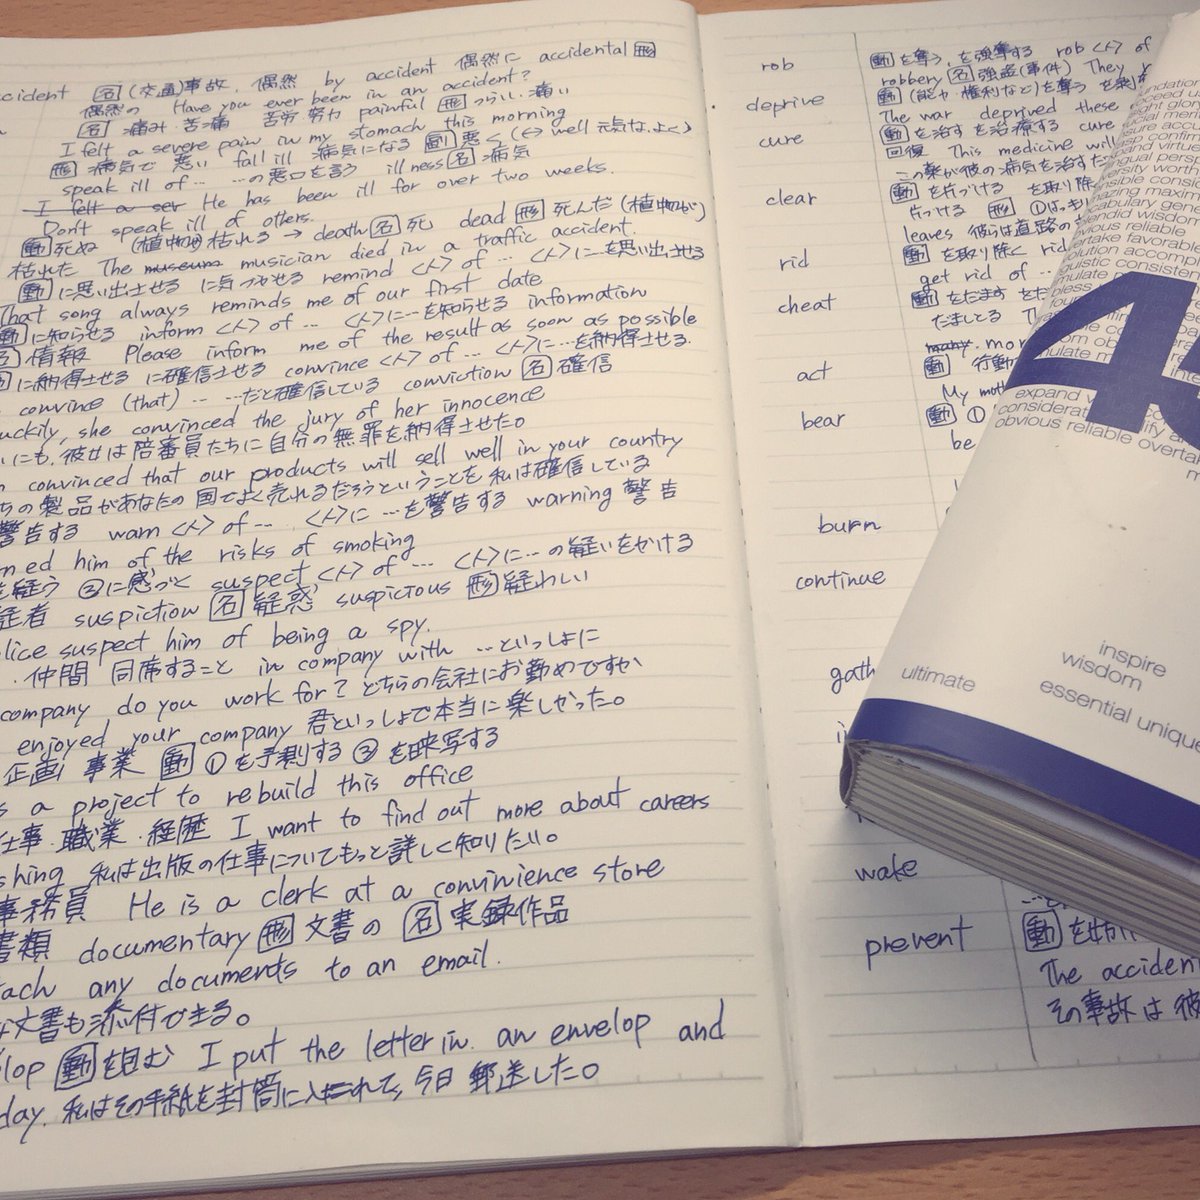 ccident 名 (交通)事故. 偶然 by accident 偶然に accidental 形
偶然の Have you ever been in an accident?
名 痛み. 苦痛 苦労 努力 painful 形 つらい. 痛い
I felt a severe pain in my stomach this morning
形 病気で 悪い fall ill 病気になる 副 悪く (↔ well 元気な, よく)
speak ill of … …の悪口を言う illness 名 病気
I felt a ser He has been ill for over two weeks.
Don't speak ill of others.
動 死ぬ (植物が)枯れる → death 名 死 dead 形 死んだ (植物が)
枯れた The museum musician died in a traffic accident.
動 に思い出させる に気づかせる remind <人> of … <人>に…を思い出させる
That song always reminds me of our first date
動 に知らせる inform <人> of … <人>に…を知らせる information
名 情報 Please inform me of the result as soon as possible
に納得させる に確信させる convince <人> of … <人>に…を納得させる.
convince (that) … …だと確信している conviction 名 確信
uckily, she convinced the jury of her innocence
にも, 彼女は陪審員たちに自分の無罪を納得させた。
convinced that our products will sell well in your country
ちの製品があなたの国でよく売れるだろうということを私は確信している
警告する warn <人> of … <人>に…を警告する warning 警告
ned him of the risks of smoking
を疑う ②に感づく suspect <人> of … <人>に…の疑いをかける
疑者 suspiction 名 疑惑 suspicious 形 疑わしい
lice suspect him of being a spy.
. 仲間 同席すること in company with …といっしょに
company do you work for? どちらの会社にお勤めですか
enjoyed your company 君といっしょで本当に楽しかった。
企画 事業 動 ①を予測する ③を映写する
s a project to rebuild this office
仕事. 職業. 経歴 I want to find out more about careers
shing 私は出版の仕事についてもっと詳しく知りたい。
事務員 He is a clerk at a convinience store
書類 documentary 形 文書の 名 実録作品
tach any documents to an email.
な文書も添付できる。
lop 動 を包む I put the letter in an envelop and
day. 私はその手紙を封筒に入れて, 今日郵送した。
rob 動 を奪う, を強奪する rob <人> of
robbery 名 強盗(事件) They r
deprive 動 (能力・権利など)を奪う
The war deprived these
cure 動 を治す を治療する cure
回復 This medicine will
この薬が彼の病気を治すだ
clear 動 を片づける を取り除
片づける 形
leaves 彼らは道路の
rid 動 を取り除く rid
get rid of …
cheat 動 をだます
だましてる
many. mor
act 動 行動
My moth
bear 動 ①
be
burn
continue
gath
wake
prevent 動 を妨げ
The acciden
その事故は彼
4
expand
considerat
obvious reliable overtak
inspire
wisdom
ultimate
essential unique